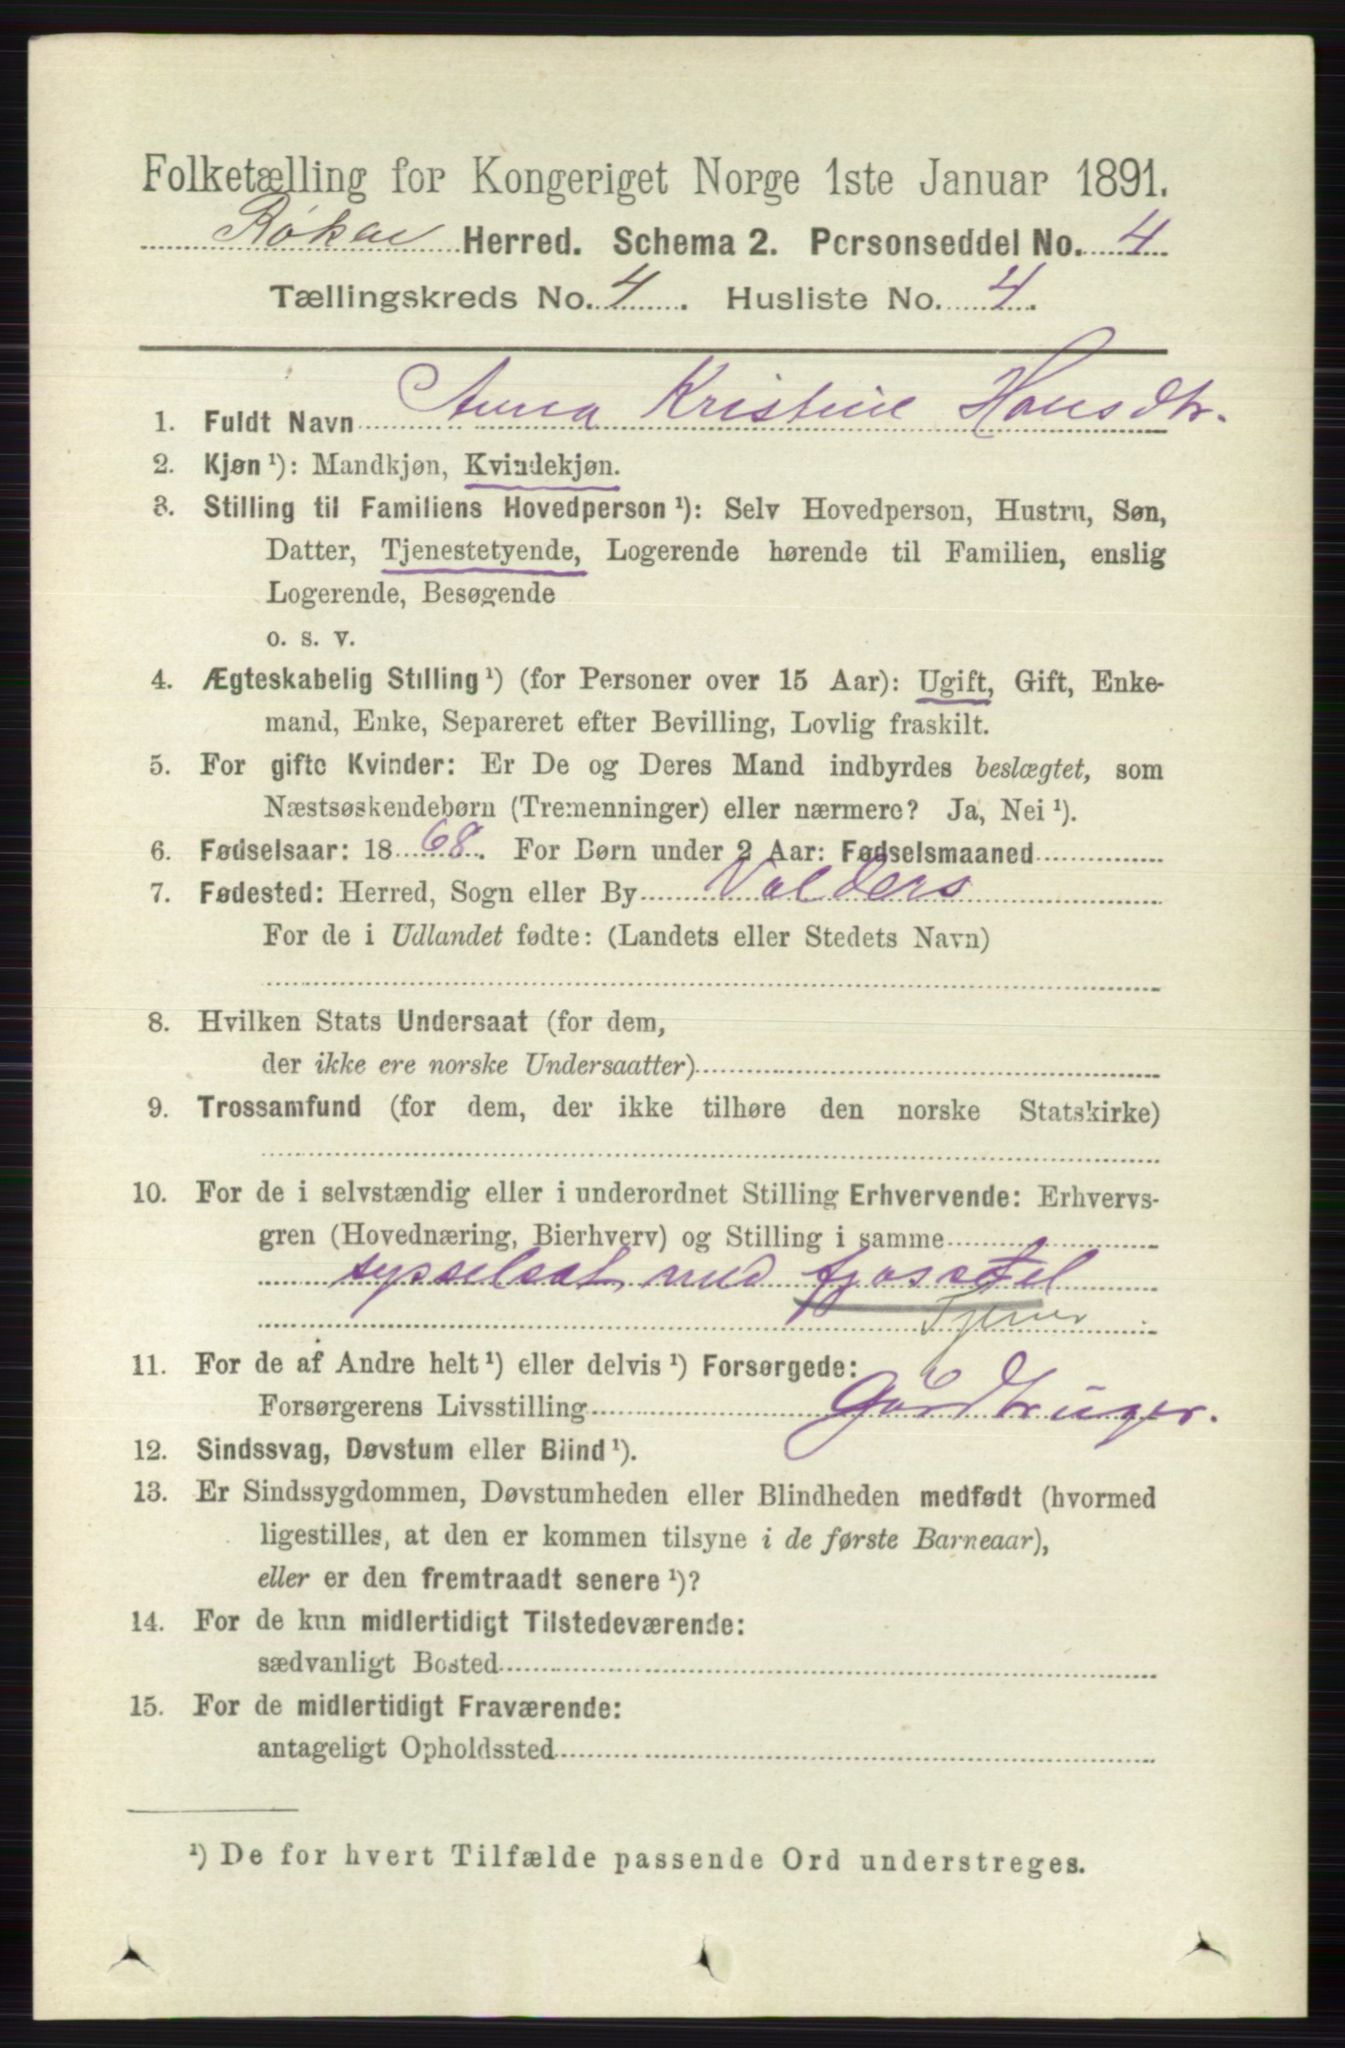 Folketælling for Kongeriget Norge 1ste Januar 1891.
Røken Herred. Schema 2. Personseddel No. 4
Tællingskreds No. 4. Husliste No. 4.
1. Fuldt Navn Anna Kristine Hansdtr.
2. Kjøn ¹): Mandkjøn, Kvindekjøn.
3. Stilling til Familiens Hovedperson ¹): Selv Hovedperson, Hustru, Søn,
Datter, Tjenestetyende, Logerende hørende til Familien, enslig
Logerende, Besøgende
o. s. v.
4. Ægteskabelig Stilling ¹) (for Personer over 15 Aar): Ugift, Gift, Enke-
mand, Enke, Separeret efter Bevilling, Lovlig fraskilt.
5. For gifte Kvinder: Er De og Deres Mand indbyrdes beslægtet, som
Næstsøskendebørn (Tremenninger) eller nærmere? Ja, Nei ¹).
6. Fødselsaar: 1868. For Børn under 2 Aar: Fødselsmaaned
7. Fødested: Herred, Sogn eller By Valders
For de i Udlandet fødte: (Landets eller Stedets Navn)
8. Hvilken Stats Undersaat (for dem,
der ikke ere norske Undersaatter)
9. Trossamfund (for dem, der ikke tilhøre den norske Statskirke)
10. For de i selvstændig eller i underordnet Stilling Erhvervende: Erhvervs-
gren (Hovednæring, Bierhverv) og Stilling i samme
sysselsat med fjosstel
Tjener
11. For de af Andre helt ¹) eller delvis ¹) Forsørgede:
Forsørgerens Livsstilling Gårdbruger.
12. Sindssvag, Døvstum eller Blind ¹).
13. Er Sindssygdommen, Døvstumheden eller Blindheden medfødt (hvormed
ligestilles, at den er kommen tilsyne i de første Barneaar),
eller er den fremtraadt senere ¹)?
14. For de kun midlertidigt Tilstedeværende:
sædvanligt Bosted
15. For de midlertidigt Fraværende:
antageligt Opholdssted
¹) De for hvert Tilfælde passende Ord understreges.